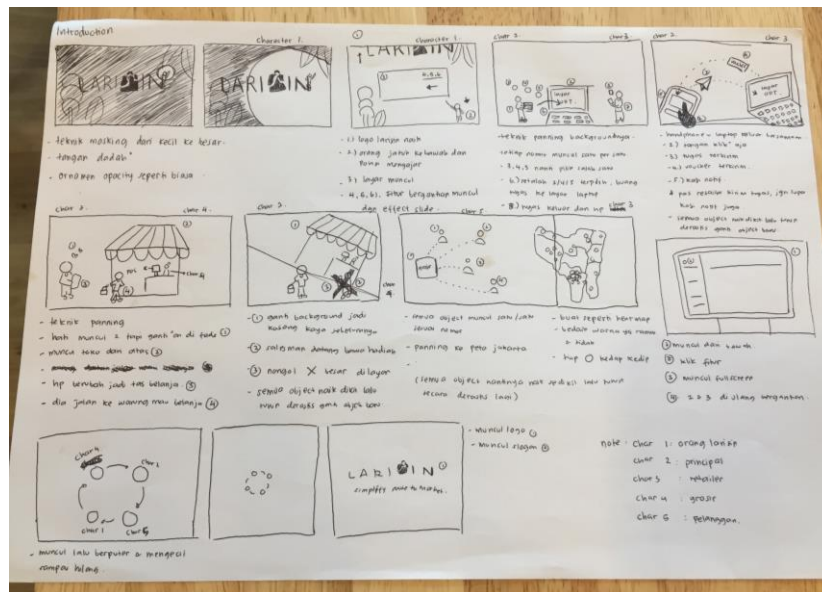 Introduction
character 1.
LARISIN
LARISIN
- teknik masking dari kecil ke besar.
- tangan dadah"
- ornamen opacity seperti biasa
①
character 1.
LARISIN
- 1) logo langsn naik
- 2) orang jatuh kebawah dan
pomp mengajar
3) layar muncul
- 4,5,6). situr bergantian muncul
dgn effect slide.
char 2.
char 3
- teknik panning backgroundnya.
- setiap nomor muncul satu per satu
- 3,4,5 nanti pilih salah satu
- 6) setelah
terpilih, buang
tugas ke layar laptop
- 8) tugas keluar dari hp
char 2.
char 3
- handphone - laptop keluar bersamaan
- 2) tangan klik" aja
- 3) tugas terkirim
- 4) voucher terkirim.
- 5) kasi notif.
kirim tugas, jgn lupa
kasi notif juga
- semua object naik dikit lalu turun
derastis ganti object baru.
char 2.
char 4.
- teknik panning
- hati muncul 2 tapi ganti"an di fade ①
- muncul toko dari atas ②
- hp berubah jadi tas belanja ③
- dia jalan ke warung mau belanja ④
char 2.
char 4.
- ① ganti background jadi
kosong kaya sebelumnya
- ② salesman datang bawa hadiah
- ③ nongol X besar di layar
- semua object naik dikit lalu
turun derastis ganti object baru.
char 5
- semua object muncul satu/satu
sesuai nomor
- panning ke peta jakarta
(semua object nantinya naik sedikit lalu turun
secara derastis lagi)
- buat seperti heat map
- bedain warna yg ramai
& tidak
- tiap O kedap kedip
① muncul dari bawah
② klik fitur
③ muncul fullscreen
④ 2 & 3 di ulang bergantian.
char 4
char 1
char 1
char 5
- muncul lalu berputar & mengecil
sampai hilang.
LARISIN ①
simplify route to market. ②
- muncul logo ①
- muncul slogan ②
note : char 1 : orang larisin
char 2 : principal
char 3 : retailer
char 4 : grosir
char 5 : pelanggan.